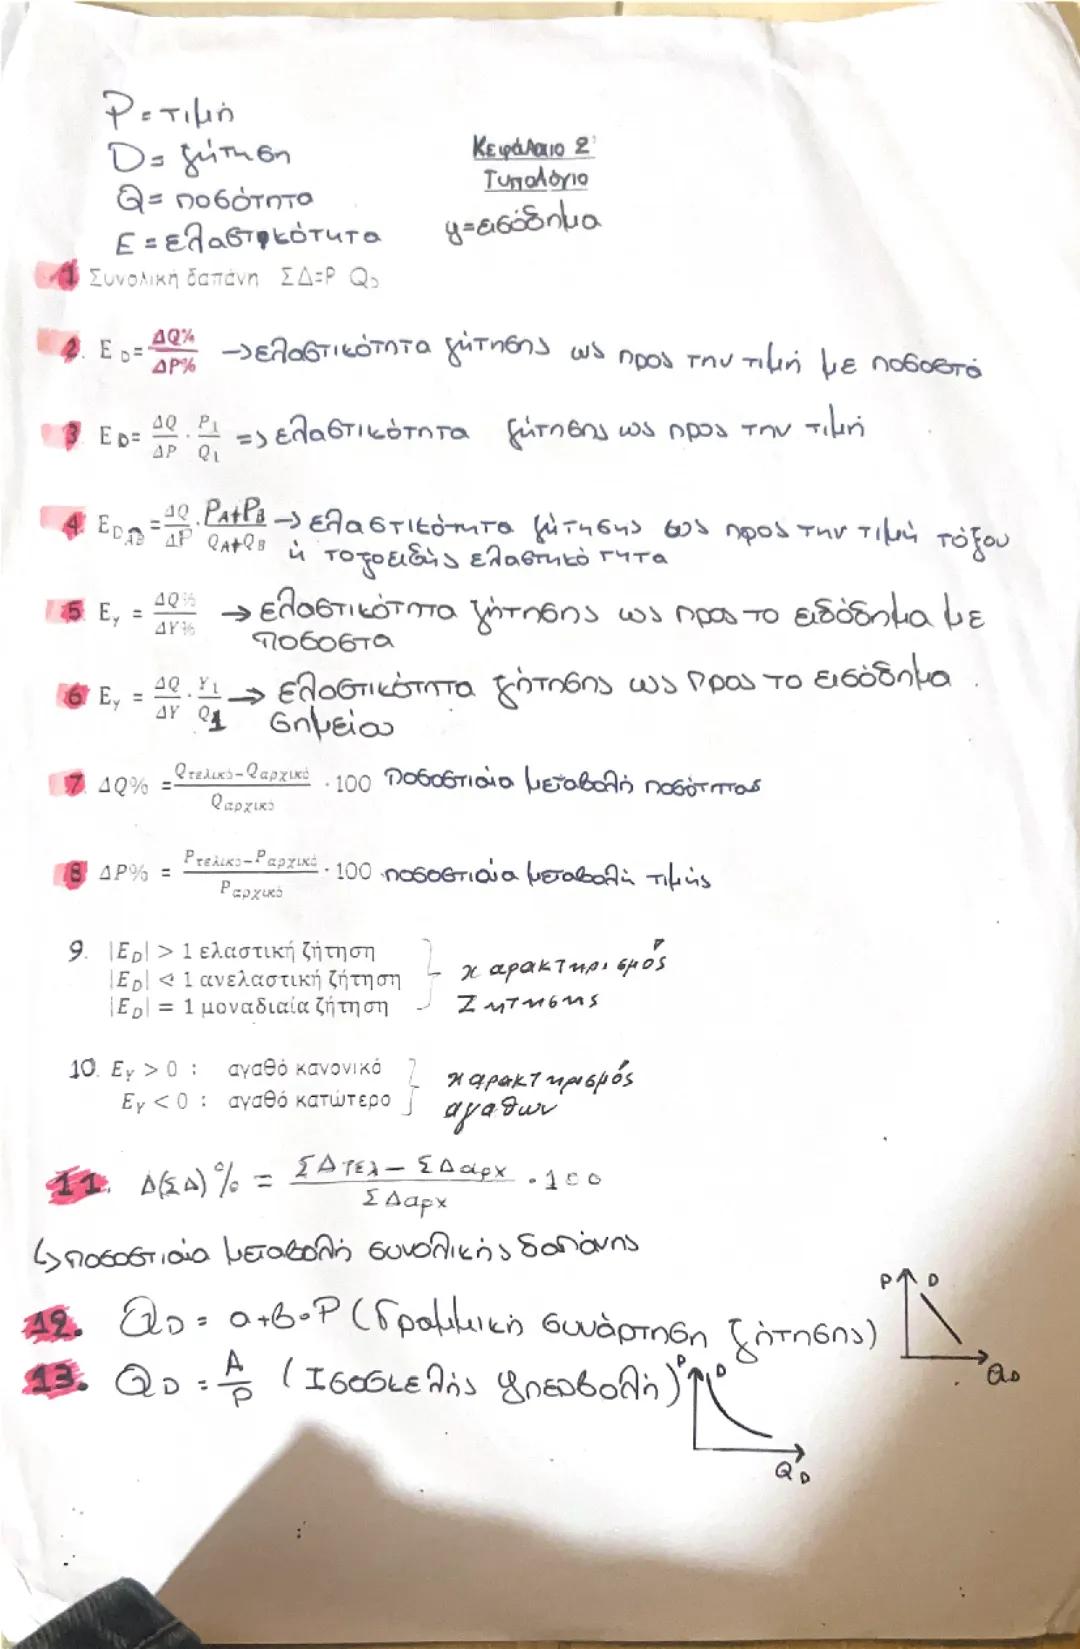 P = τιμή
D = ζήτηση
Q = ποσότητα
E = ελαστικότητα
Κεφάλαιο 2
Τυπολόγιο
y = εισόδημα
1 Συνολική δαπάνη ΣΔ=P Q_D
2. E_D = ΔQ% / ΔP% → ελαστικότητα ζήτησης ως προς την τιμή με ποσοστά
3 E_D = ΔQ/ΔP · P₁/Q₁ => ελαστικότητα ζήτησης ως προς την τιμή
4. E_D_AB = ΔQ/ΔP · P_A+P_B / Q_A+Q_B → ελαστικότητα ζήτησης ως προς την τιμή τόξου
ή τοξοειδής ελαστικότητα
5 E_y = ΔQ% / ΔY% → ελαστικότητα ζήτησης ως προς το εισόδημα με
ποσοστα
6 E_y = ΔQ/ΔY · Y₁/Q₁ → ελαστικότητα ζήτησης ως προς το εισόδημα
σημείου
7 ΔQ% = Qτελικό-Qαρχικό / Qαρχικό · 100 Ποσοστιαία μεταβολή ποσότητας
8 ΔP% = Pτελικό-Pαρχικό / Pαρχικό · 100 ποσοστιαία μεταβολή τιμής
9. |E_D| > 1 ελαστική ζήτηση
|E_D| < 1 ανελαστική ζήτηση
|E_D| = 1 μοναδιαία ζήτηση
χαρακτηρισμός
Ζήτησης
10. E_Y > 0 : αγαθό κανονικό
E_Y < 0 : αγαθό κατώτερο
χαρακτηρισμός
αγαθων
11. Δ(ΣΔ)% = ΣΔτελ - ΣΔαρχ / ΣΔαρχ · 100
↳ ποσοστιαία μεταβολή συνολικής δαπάνης
12. Q_D = α+β·P (Γραμμική συνάρτηση ζήτησης)
P D
Q_D
13. Q_D = A/P (Ισοσκελής υπερβολή)
P D
Q_D